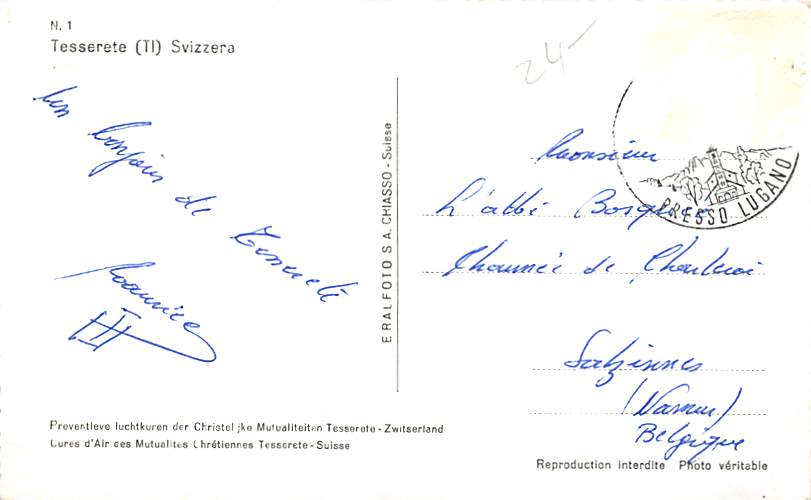 N. 1
Tesserete (TI) Svizzera
24
un bonjour de Tesserete
Maurice
ERALFOTO S A. CHIASSO - Suisse
PRESSO LUGANO
Monsieur
L'abbé
Chaussée de Charleroi
Salzinnes
(Namur)
Belgique
Preventieve luchtkuren der Christelijke Mutualiteiten Tesserete - Zwitserland
Cures d'Air des Mutualités Chrétiennes Tesserete - Suisse
Reproduction interdite Photo véritable